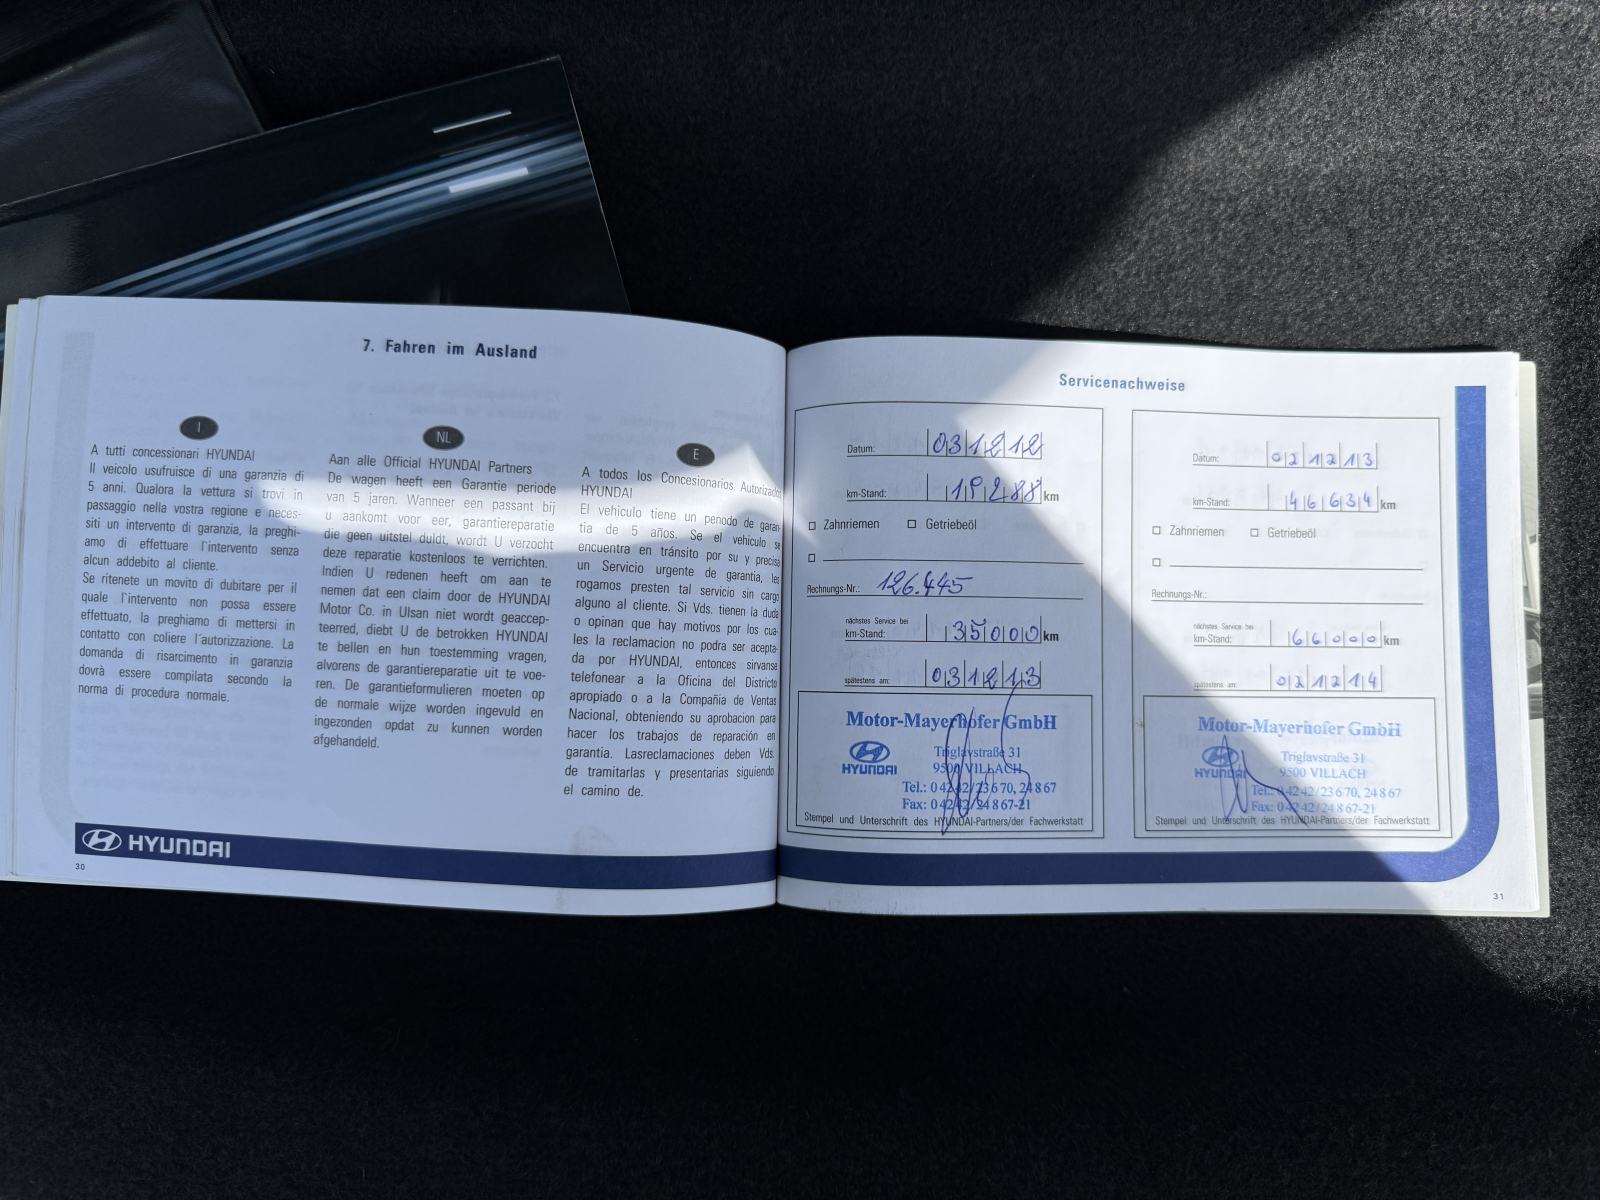 7. Fahren im Ausland
I
A tutti concessionari HYUNDAI
Il veicolo usufruisce di una garanzia di
5 anni. Qualora la vettura si trovi in
passaggio nella vostra regione e neces-
siti un intervento di garanzia, la preghi-
amo di effettuare l`intervento senza
alcun addebito al cliente.
Se ritenete un movito di dubitare per il
quale l`intervento non possa essere
effettuato, la preghiamo di mettersi in
contatto con coliere l´autorizzazione. La
domanda di risarcimento in garanzia
dovrà essere compilata secondo la
norma di procedura normale.
NL
Aan alle Official HYUNDAI Partners
De wagen heeft een Garantie periode
van 5 jaren. Wanneer een passant bij
u aankomt voor eer, garantiereparatie
die geen uitstel duldt, wordt U verzocht
deze reparatie kostenloos te verrichten.
Indien U redenen heeft om aan te
nemen dat een claim door de HYUNDAI
Motor Co. in Ulsan niet wordt geaccep-
teerred, diebt U de betrokken HYUNDAI
te bellen en hun toestemming vragen,
alvorens de garantiereparatie uit te voe-
ren. De garantieformulieren moeten op
de normale wijze worden ingevuld en
ingezonden opdat zu kunnen worden
afgehandeld.
E
A todos los Concesionarios Autorizados
HYUNDAI
El vehiculo tiene un penodo de garan-
tia de 5 años. Se el vehiculo se
encuentra en tránsito por su y precisa
un Servicio urgente de garantia, les
rogamos presten tal servicio sin cargo
alguno al cliente. Si Vds. tienen la duda
o opinan que hay motivos por los cua-
les la reclamacion no podra ser acepta-
da por HYUNDAI, entonces sirvanse
telefonear a la Oficina del Districto
apropiado o a la Compañia de Ventas
Nacional, obteniendo su aprobacion para
hacer los trabajos de reparación en
garantia. Lasreclamaciones deben Vds.
de tramitarlas y presentarias siguiendo
el camino de.
HYUNDAI
30
Servicenachweise
Datum: 031212
km-Stand: 19288 km
Zahnriemen Getriebeöl
Rechnungs-Nr.: 126.445
nächstes Service bei
km-Stand: 35000 km
spätestens am: 031213
Motor-Mayerhofer GmbH
Triglavstraße 31
HYUNDAI 9500 VILLACH
Tel.: 0 42 42/23 6 70, 24 8 67
Fax: 0 42 42/24 8 67-21
Stempel und Unterschrift des HYUNDAI-Partners/der Fachwerkstatt
Datum: 021213
km-Stand: 46634 km
Zahnriemen Getriebeöl
Rechnungs-Nr.:
nächstes Service bei
km-Stand: 66000 km
spätestens am: 021214
Motor-Mayerhofer GmbH
Triglavstraße 31
HYUNDAI 9500 VILLACH
Tel.: 0 42 42/23 6 70, 24 8 67
Fax: 0 42 42/24 8 67-21
Stempel und Unterschrift des HYUNDAI-Partners/der Fachwerkstatt
31